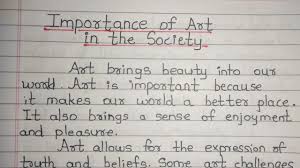 Importance of Art
in the Society
Art brings beauty into our
world. Art is important because
it makes our world a better place.
It also brings a sense of enjoyment
and pleasure.
Art allows for the expression of
truth and beliefs. Some art challenges